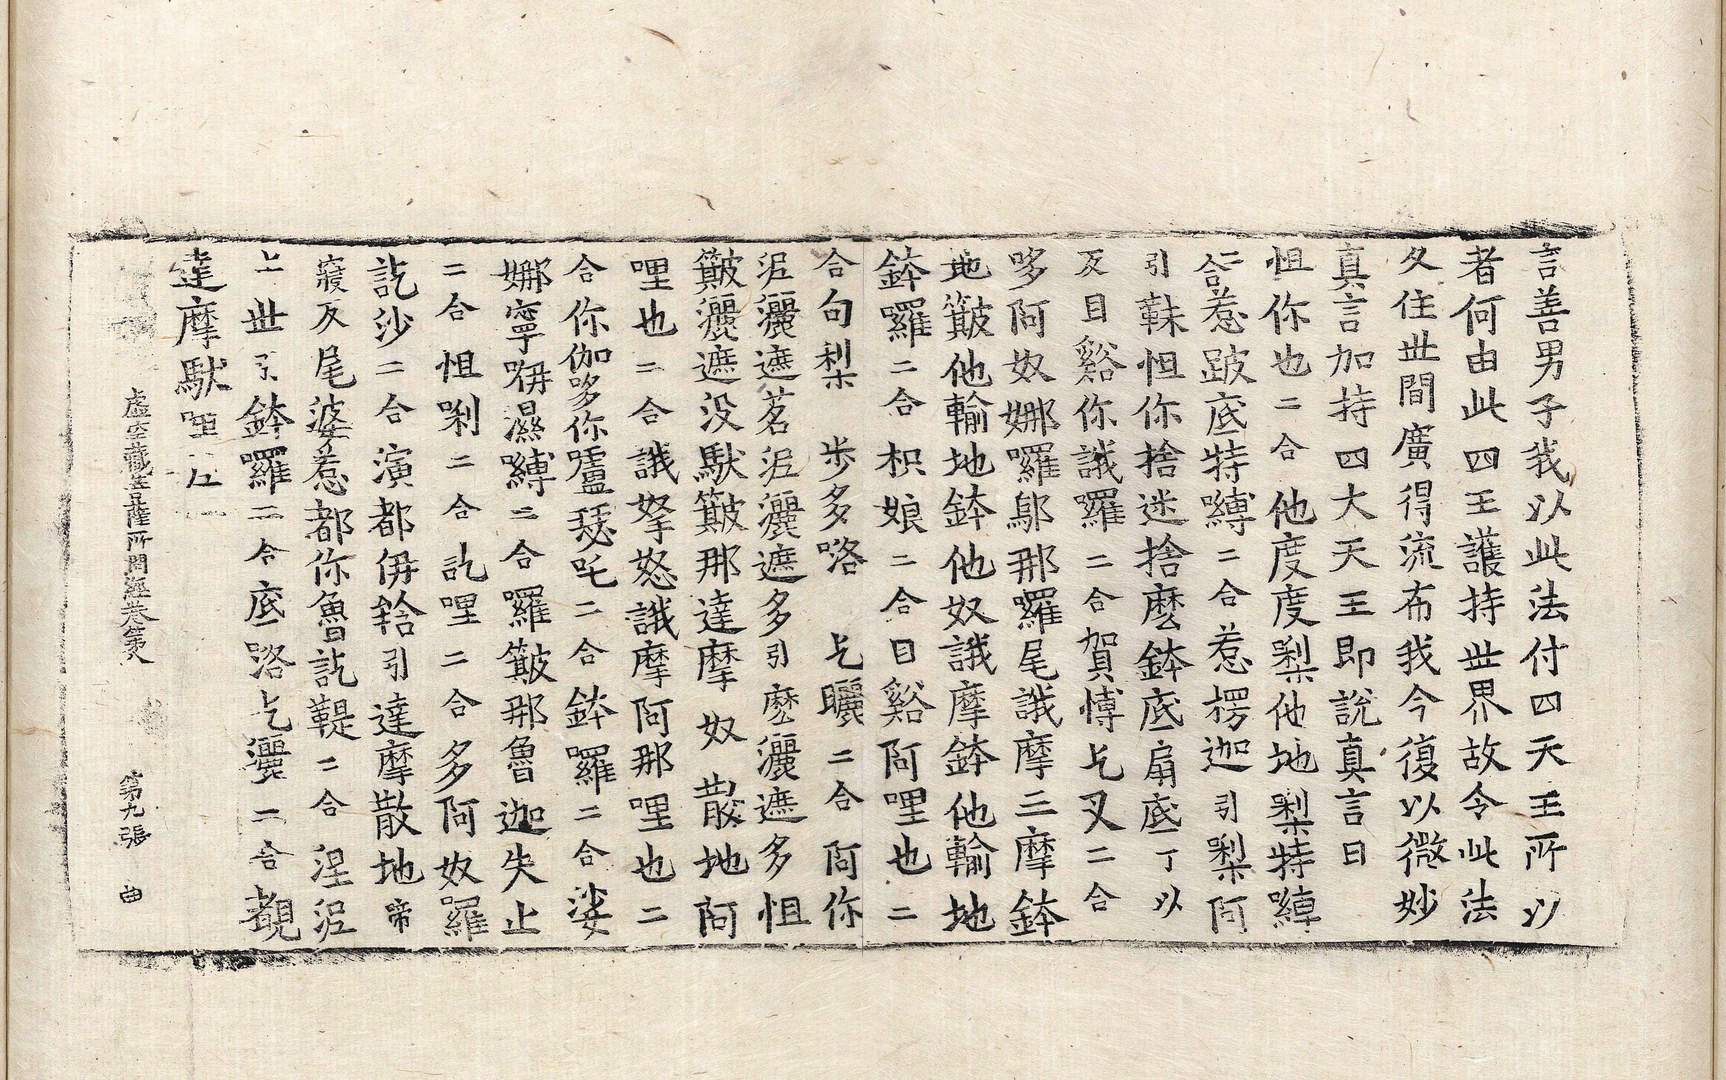 言善男子我以此法付四天王所以
者何由此四王護持世界故令此法
久住世間廣得流布我今復以微妙
真言加持四大天王即說真言曰
怛你也二合他度度㘑他地㘑特嚩
二合惹跛底特嚩二合惹楞迦引㘑阿
引靺怛你捨迷捨麽鉢底扇底丁以
反目谿你誐囉二合賀慱乞叉二合
哆阿奴娜囉鄔那囉尾誐摩三摩鉢
地簸他輸地鉢他奴誐摩鉢他輸地
鉢囉二合枳娘二合目谿阿哩也二
合句㘑步多咯乞曬二合阿你
泥灑遮茗泥灑遮多引麽灑遮多怛
簸灑遮没馱簸那達摩奴散地阿
哩也二合誐拏怒誐摩阿那哩也二
合你伽哆你嚧瑟吒二合鉢囉二合娑
娜寧嚩二合囉簸那魯迦失止
二合怛唎二合訖哩二合多阿奴羅
訖沙二合演都伊鋡引達摩散地啼
寢反尾婆惹都你魯訖鞮二合涅泥
上世引鉢囉二合底咯乞灑二合覩
達摩馱哩
虛空藏菩薩所問經卷第八 第九張 曲